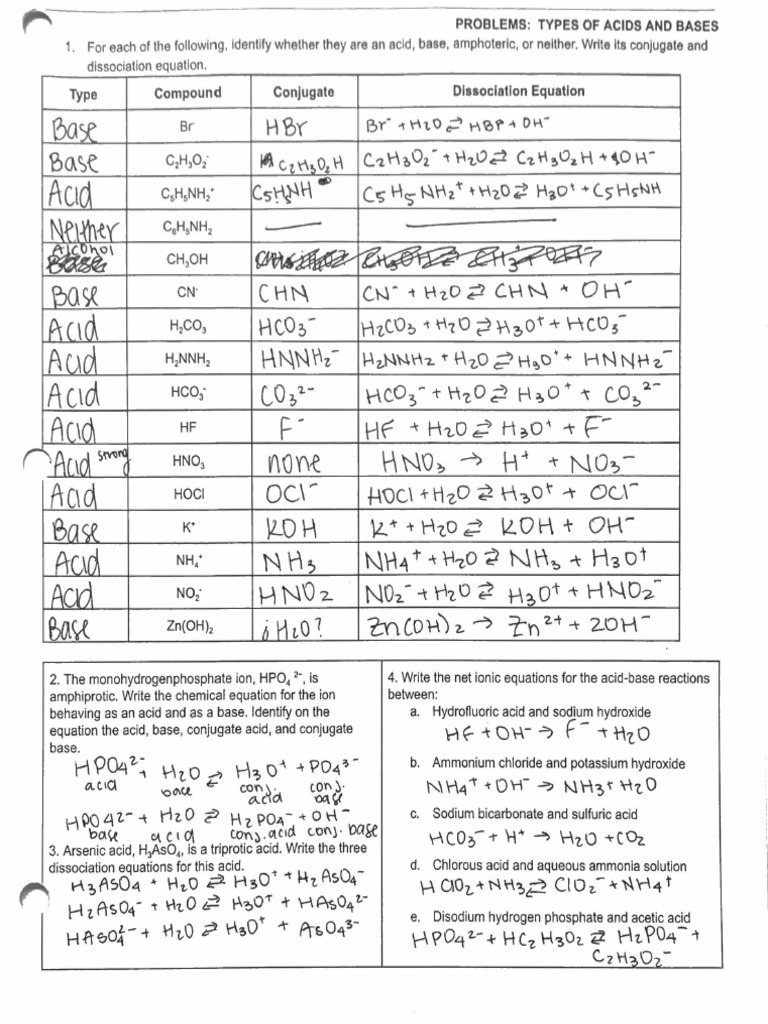 PROBLEMS: TYPES OF ACIDS AND BASES
1. For each of the following, identify whether they are an acid, base, amphoteric, or neither. Write its conjugate and
dissociation equation.
Type Compound Conjugate Dissociation Equation
Base Br HBr Br⁻ + H2O ⇌ HBr + OH⁻
Base C₂H₃O₂⁻ C2H3O2H C2H3O2⁻ + H2O ⇌ C2H3O2H + OH⁻
Acid C₅H₅NH₂⁺ C5H5NH C5H5NH2⁺ + H2O ⇌ H3O⁺ + C5H5NH
Neither C₆H₅NH₂ — —
Alcohol CH₃OH
Base CN⁻ CHN CN⁻ + H2O ⇌ CHN + OH⁻
Acid H₂CO₃ HCO3⁻ H2CO3 + H2O ⇌ H3O⁺ + HCO3⁻
Acid H₂NNH₂ HNNH2⁻ H2NNH2 + H2O ⇌ H3O⁺ + HNNH2⁻
Acid HCO₃⁻ CO3²⁻ HCO3⁻ + H2O ⇌ H3O⁺ + CO3²⁻
Acid HF F⁻ HF + H2O ⇌ H3O⁺ + F⁻
Acid strong HNO₃ none HNO3 → H⁺ + NO3⁻
Acid HOCl OCl⁻ HOCl + H2O ⇌ H3O⁺ + OCl⁻
Base K⁺ KOH K⁺ + H2O ⇌ KOH + OH⁻
Acid NH₄⁺ NH3 NH4⁺ + H2O ⇌ NH3 + H3O⁺
Acid NO₂⁻ HNO2 NO2⁻ + H2O ⇌ H3O⁺ + HNO2⁻
Base Zn(OH)₂ ¿H2O? Zn(OH)2 → Zn²⁺ + 2OH⁻
2. The monohydrogenphosphate ion, HPO₄ ²⁻, is
amphiprotic. Write the chemical equation for the ion
behaving as an acid and as a base. Identify on the
equation the acid, base, conjugate acid, and conjugate
base.
HPO4²⁻ + H2O ⇌ H3O⁺ + PO4³⁻
acid base conj. acid conj. base
HPO4²⁻ + H2O ⇌ H2PO4⁻ + OH⁻
base acid conj. acid conj. base
3. Arsenic acid, H₃AsO₄, is a triprotic acid. Write the three
dissociation equations for this acid.
H3AsO4 + H2O ⇌ H3O⁺ + H2AsO4⁻
H2AsO4⁻ + H2O ⇌ H3O⁺ + HAsO4²⁻
HAsO4²⁻ + H2O ⇌ H3O⁺ + AsO4³⁻
4. Write the net ionic equations for the acid-base reactions
between:
a. Hydrofluoric acid and sodium hydroxide
HF + OH⁻ → F⁻ + H2O
b. Ammonium chloride and potassium hydroxide
NH4⁺ + OH⁻ → NH3 + H2O
c. Sodium bicarbonate and sulfuric acid
HCO3⁻ + H⁺ → H2O + CO2
d. Chlorous acid and aqueous ammonia solution
HClO2 + NH3 ⇌ ClO2⁻ + NH4⁺
e. Disodium hydrogen phosphate and acetic acid
HPO4²⁻ + HC2H3O2 ⇌ H2PO4⁻ +
C2H3O2⁻